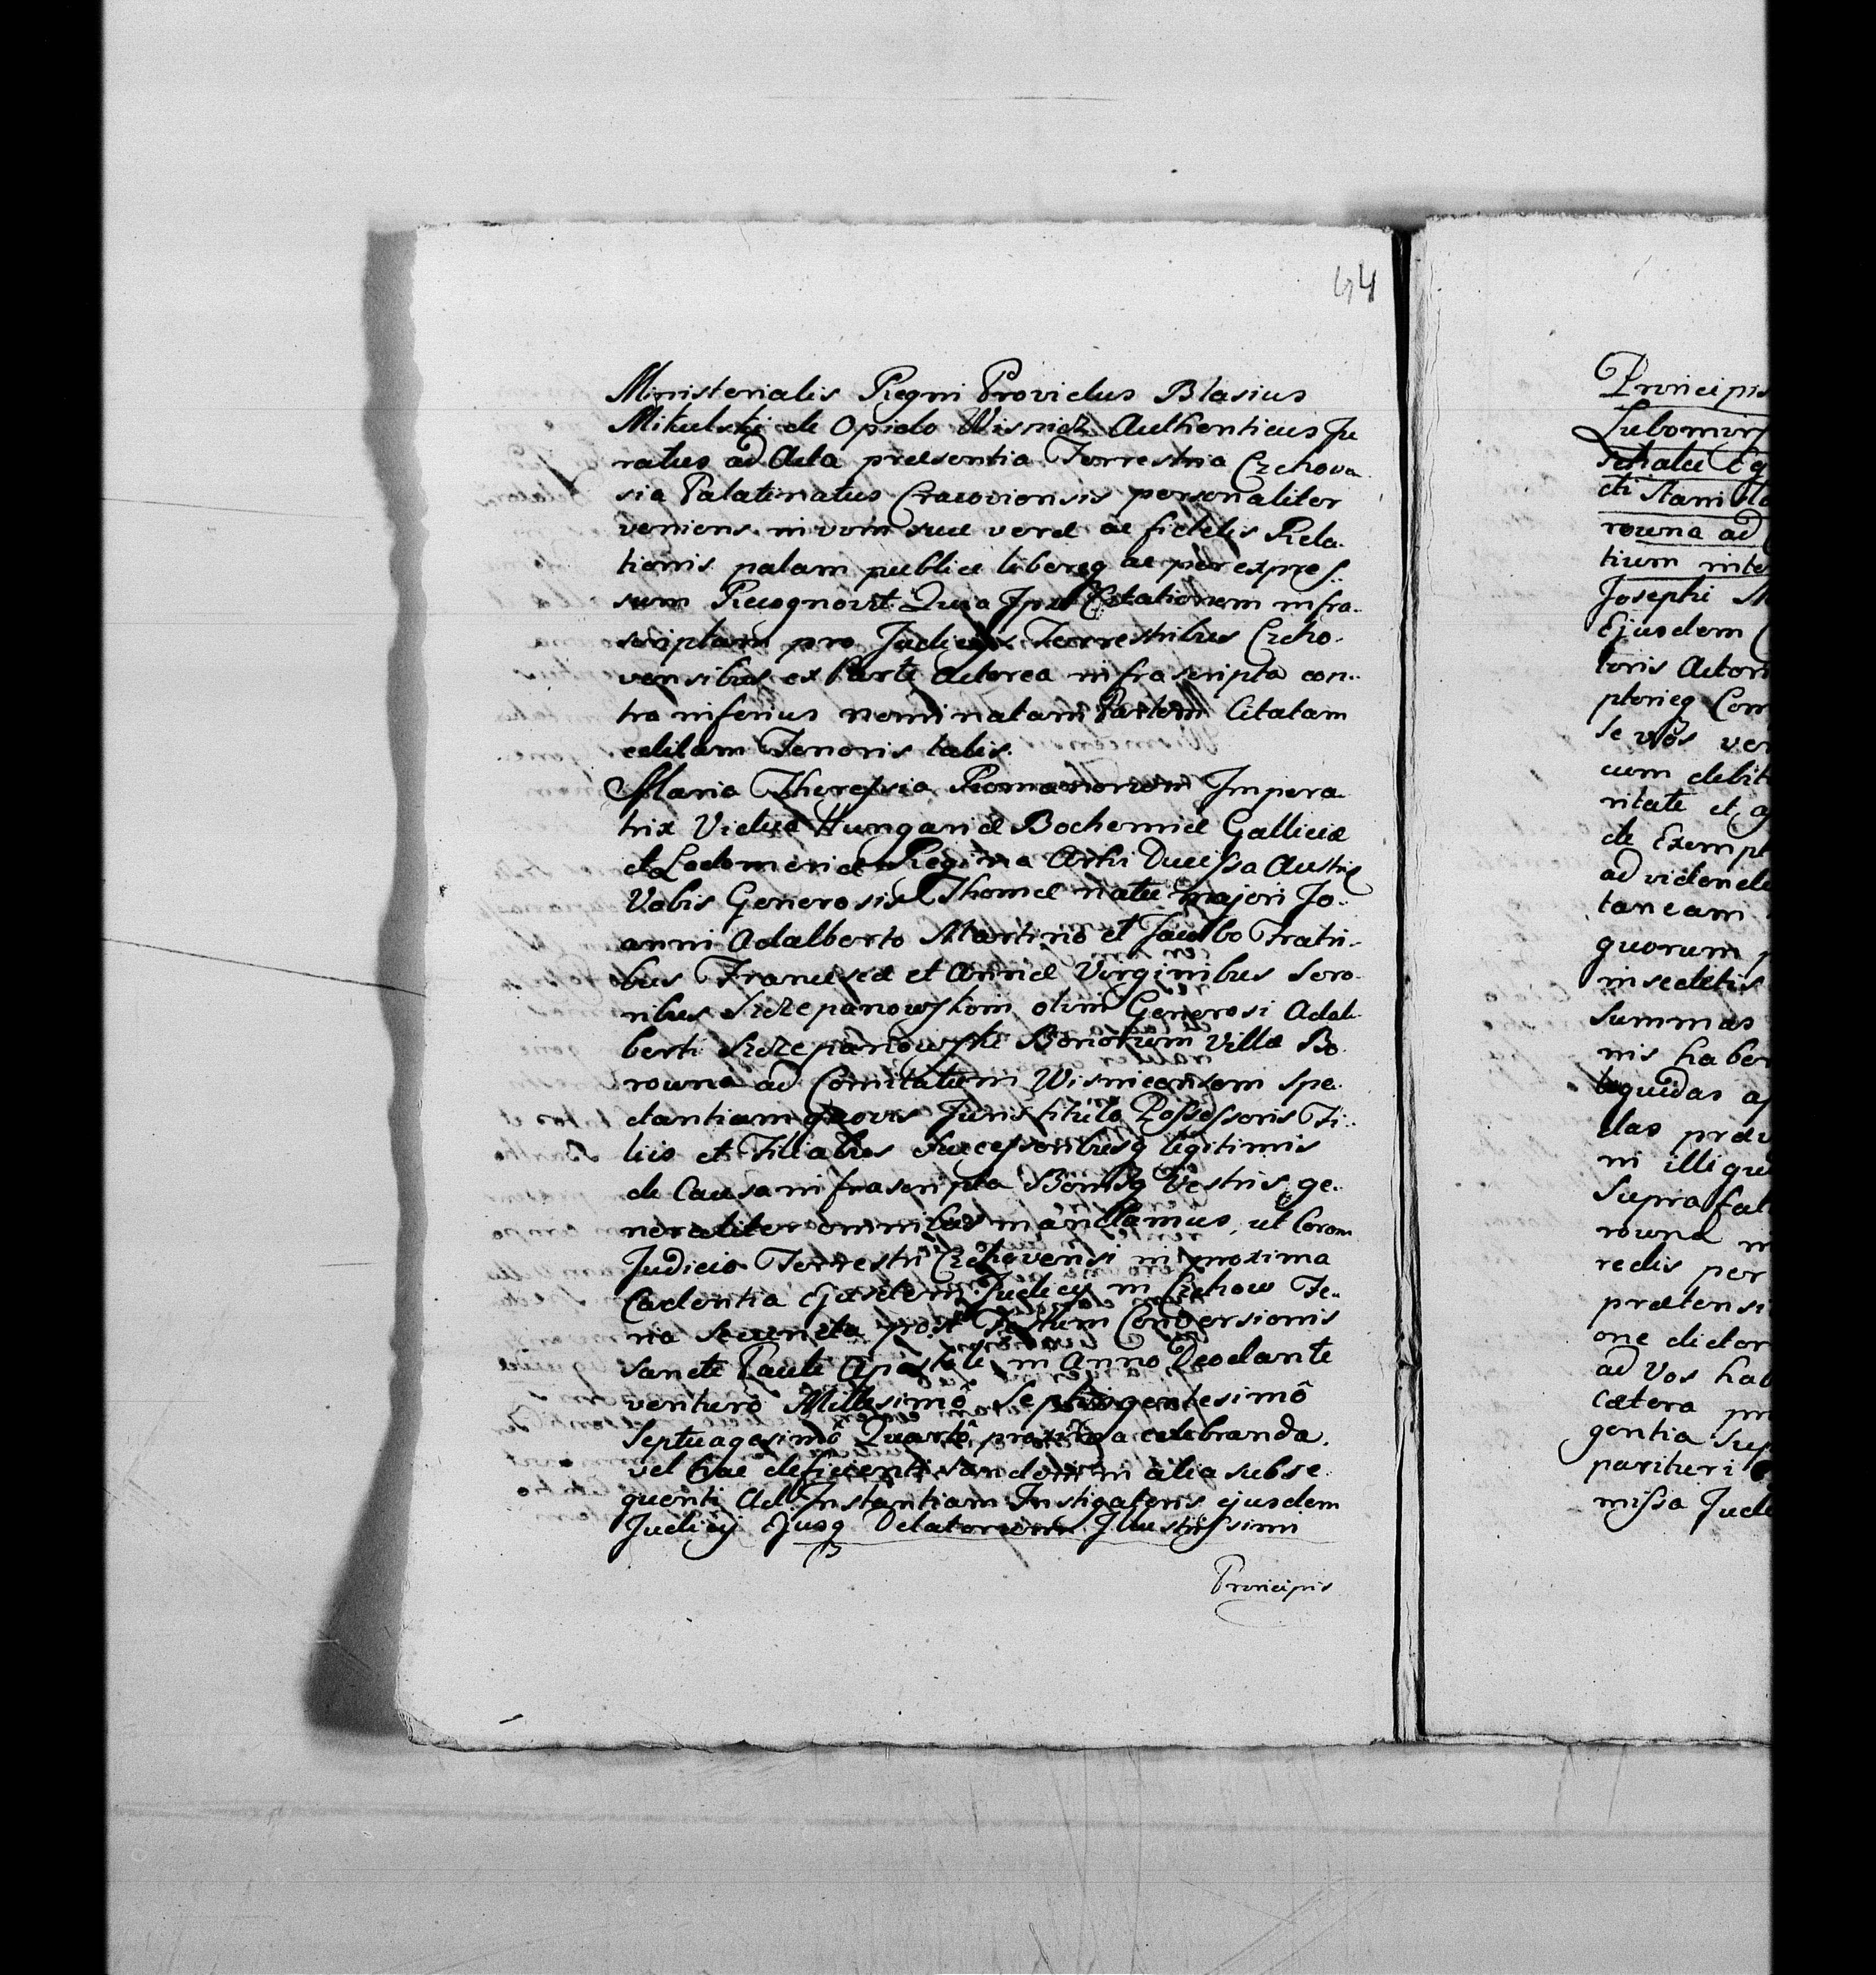 44
Ministerialis Regni Providus Blasius
Mikulski de Opido Wisnicz Authenticus Ju
ratus ad Acta præsentia Terrestria Czchova
sia Palatinatus Cracoviensis personaliter
veniens in vim suæ veræ ac fidelis Rela-
tionis palam publice libereq ac per expres-
sum Recognovit Quia Ipse Citationem infra-
scriptam pro Judicijs Terrestribus Czcho-
vensibus ex Parte Actorea infrascripta con-
tra inferius nominatam Partem Citatam
editam Tenoris talis.
Maria Theressia Romanorum Impera
trix Vidua Hungariæ Bochemiæ Galliciæ
et Lodomeriæ Regina Archi Ducissa Austriæ
Vobis Generosis Thomæ natu majori Jo-
anni Adalberto Martino et Jacobo Fratri-
bus Franciscæ et Annæ Virginibus Soro-
ribus Szczepanowskim olim Generosi Adal-
berti Szczepanowski Bonorum Villæ Bo-
rowna ad Comitatum Wisnicensem Spe-
ctantiam quovis Juris titulo Possessoris Fi-
lijs et Filiabus Successoribusq legitimis
de Causa infrascripta Bonisq Vestris ge-
neraliter omnibus mandamus, ut Coram
Judicio Terrestri Czchovensi in proxima
Cadentia Ejusdem Judicij in Czchow Fe-
ria Secunda post Festum Conversionis
Sancti Pauli Apostoli in Anno Deo dante
venturo Millesimô Septingentesimô
Septuagesimô Quartô proxima celebranda.
vel hac deficienti tandem in alia subse-
quenti Ad Instantiam Instigatoris ejusdem
Judicij Ejusq Delatorum Illustrissimi
Principis
Principis
Lubomirs
schalci Eq
cti Stanisla
rowna ad
tium inte
Josephi M
Ejusdem
toris Actor
ptorieq Com
se vos ver
cum debit
ritate et a
de Exempt
ad videnda
taneam
quorum p
insedetis
Summas
nis haber
liquidas a
das præv
ni illiqui
Suprafat
rowna m
redis per
prætensi
one dictor
ad Vos hab
cætera pr
gentia Sup
parituri
missa Jude